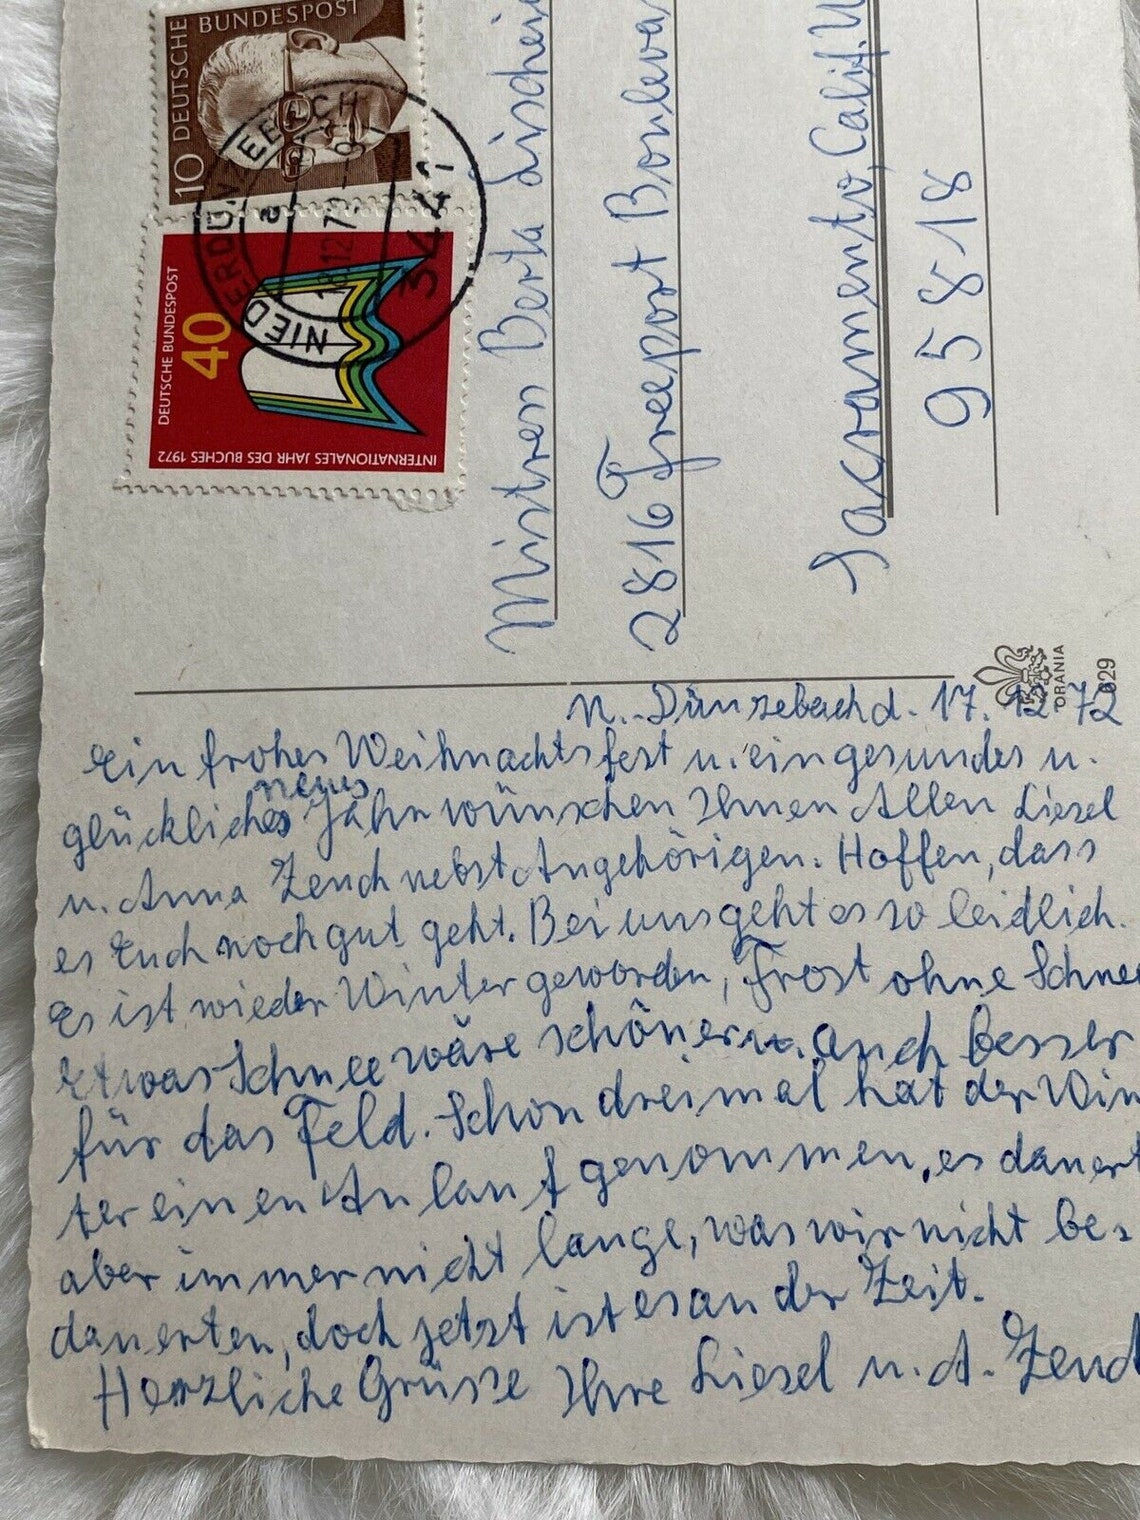 10 DEUTSCHE BUNDESPOST
40
DEUTSCHE BUNDESPOST
INTERNATIONALES JAHR DES BUCHES 1972
18.12.72
3441
Berta
2816 Freeport Bouleva
Sacramento, Calif. U
95818
ORANIA
629
N.-Dünzebach d. 17. 12 72
Ein frohes Weihnachtsfest u. ein gesundes u.
glückliches neues Jahr wünschen Ihnen Allen Liesel
u. Anna Zench nebst Angehörigen. Hoffen, dass
es Euch noch gut geht. Bei uns geht es so leidlich.
Es ist wieder Winter geworden, Frost ohne Schnee
Etwas Schnee wäre schöner u. auch besser
für das Feld. Schon dreimal hat der Win
ter einen Anlauf genommen, es dauert
aber immer nicht lange, was wir nicht be-
dauerten, doch jetzt ist es an der Zeit.
Herzliche Grüsse Ihre Liesel u. A. Zench